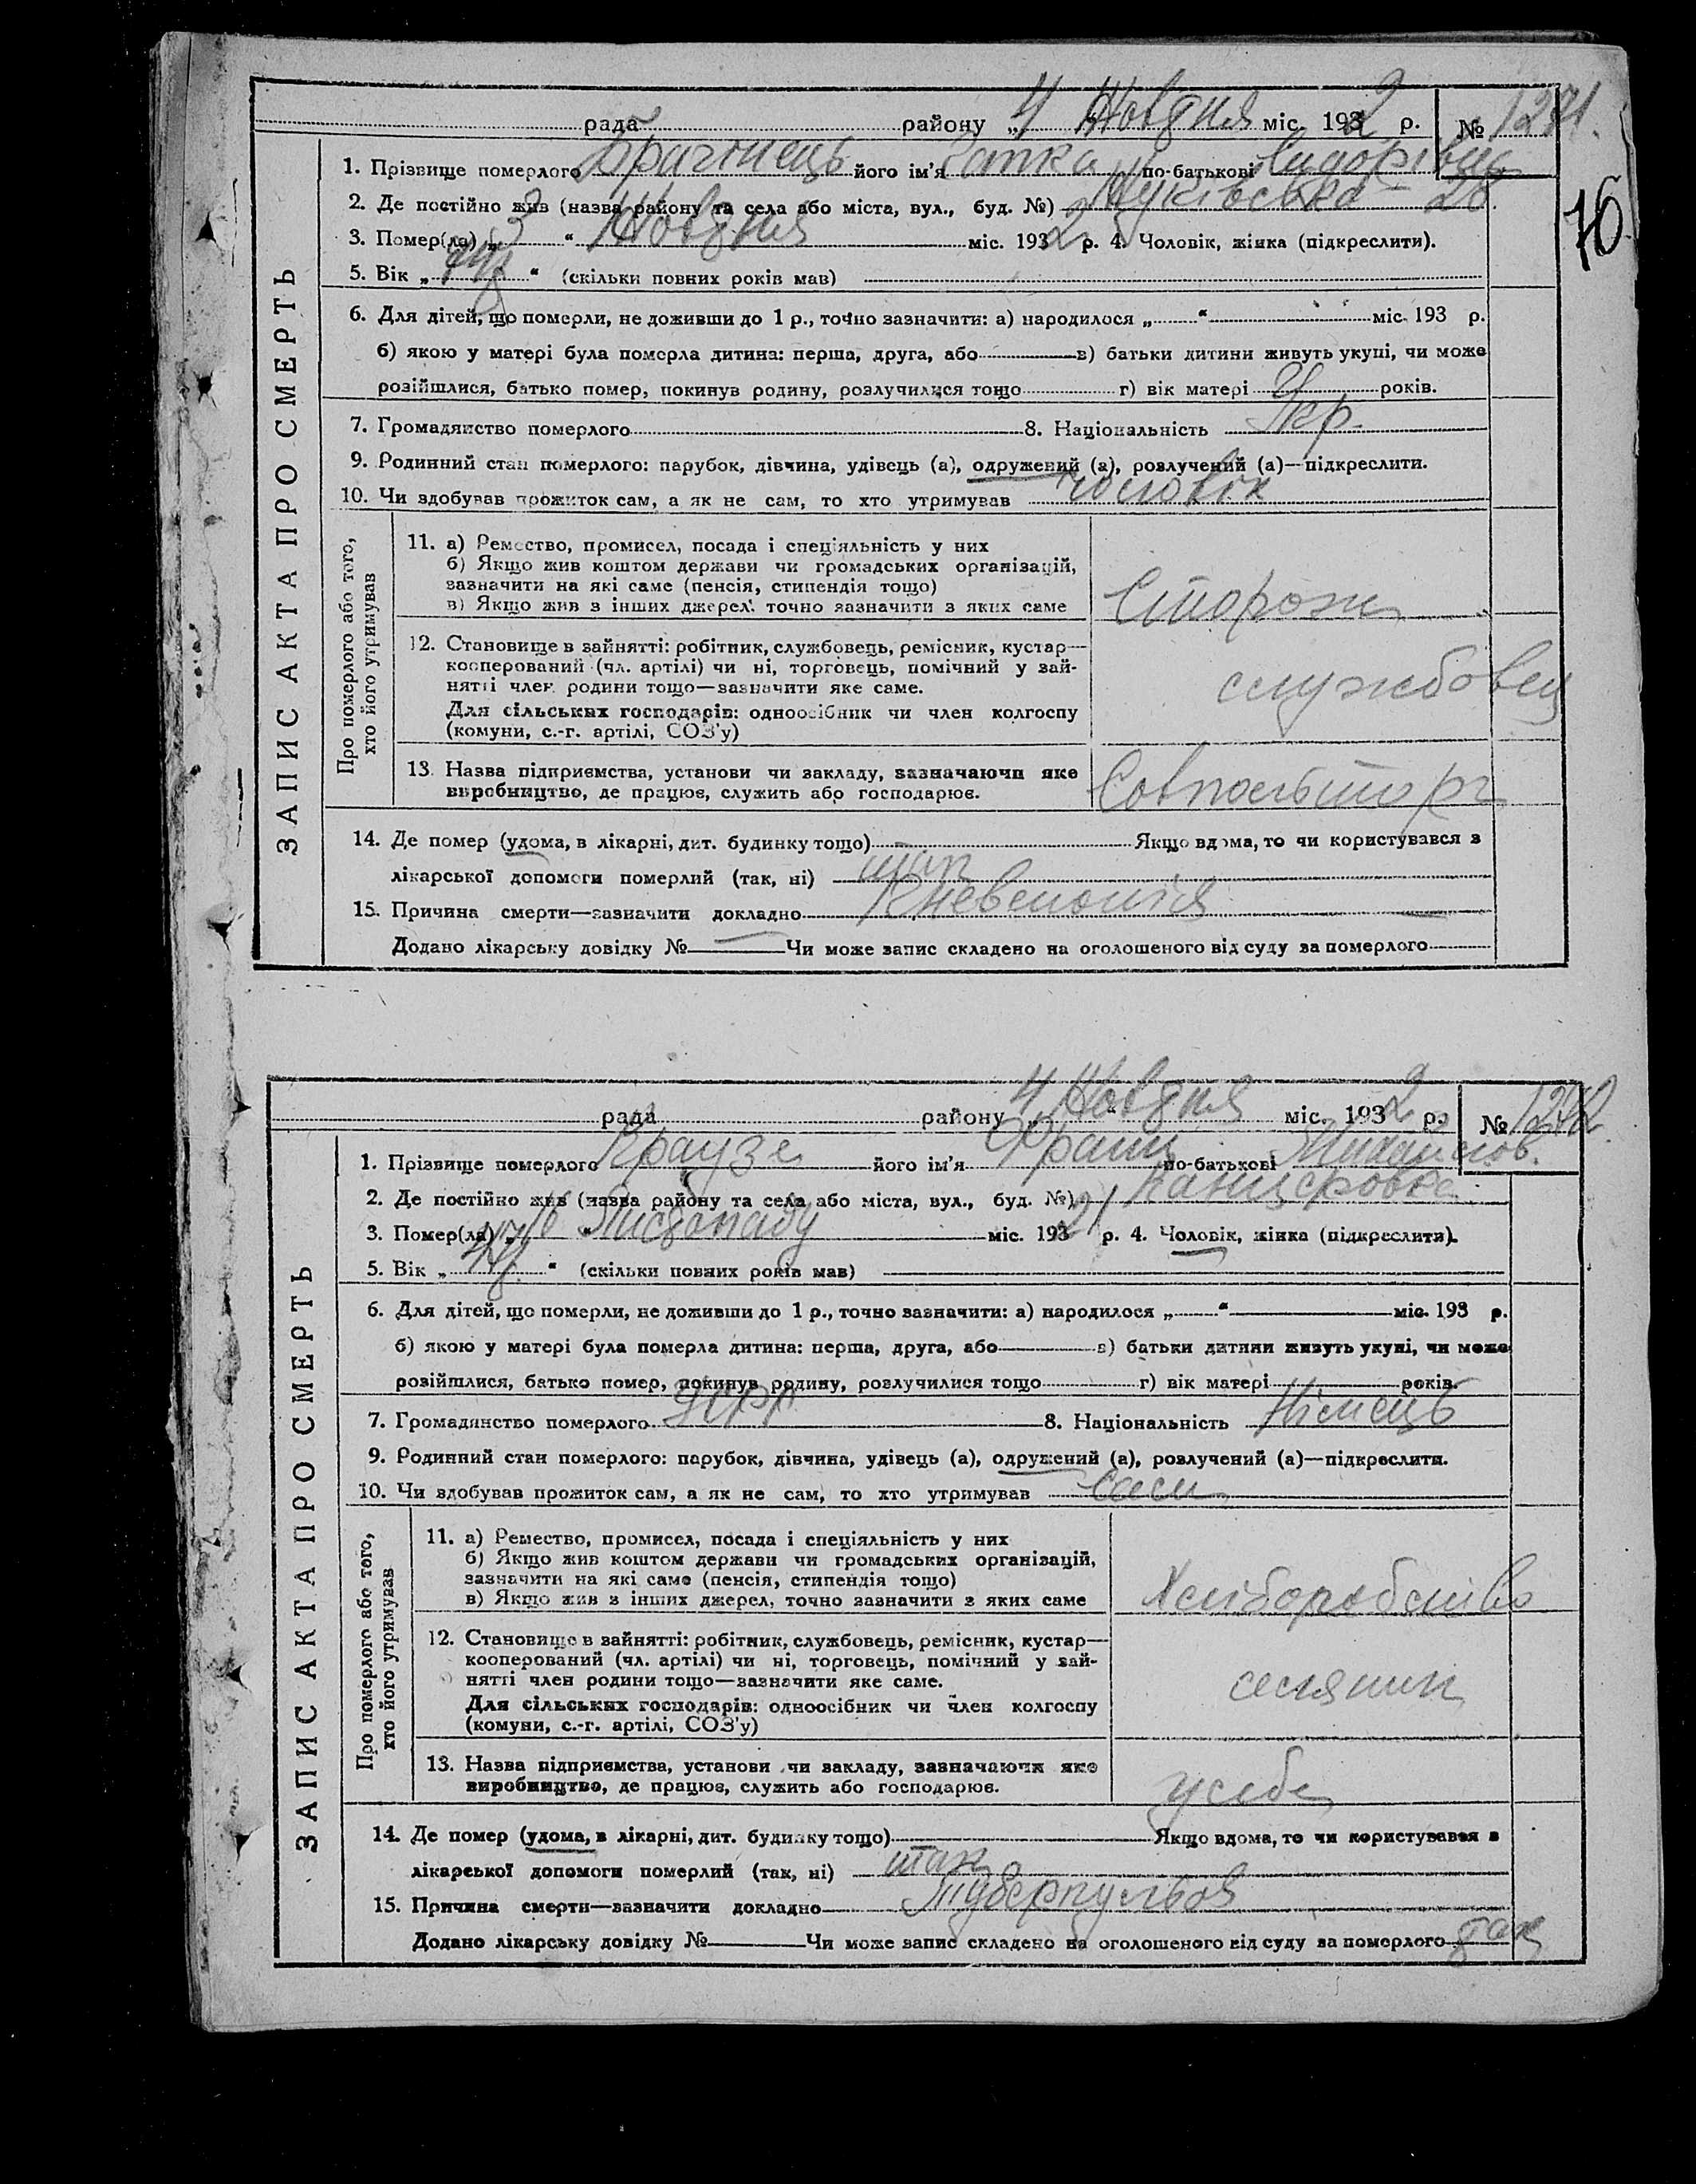 рада району „4 Жовтня міс. 1932 р. № 1271.
1. Прізвище померлого його ім'я по-батькові
2. Де постійно жив (назва району та села або міста, вул., буд. №) 28.
3. Помер(ла) „3“ Жовтня міс. 1932 р. 4. Чоловік, жінка (підкреслити).
5. Вік „ “ (скільки повних років мав)
6. Для дітей, що померли, не доживши до 1 р., точно зазначити: а) народилося „ “ міс. 193 р.
б) якою у матері була померла дитина: перша, друга, або в) батьки дитини живуть укупі, чи може
розійшлися, батько помер, покинув родину, розлучилися тощо г) вік матері років.
7. Громадянство померлого 8. Національність Укр.
9. Родинний стан померлого: парубок, дівчина, удівець (а), одружений (а), розлучений (а)—підкреслити.
10. Чи здобував прожиток сам, а як не сам, то хто утримував чоловік
ЗАПИС АКТА ПРО СМЕРТЬ
Про померлого або того,
хто його утримував
11. а) Ремество, промисел, посада і спеціяльність у них
б) Якщо жив коштом держави чи громадських організацій,
зазначити на які саме (пенсія, стипендія тощо)
в) Якщо жив з інших джерел, точно зазначити з яких саме
Сторож
12. Становище в зайнятті: робітник, службовець, ремісник, кустар—
кооперований (чл. артілі) чи ні, торговець, помічний у зай-
нятті член родини тощо—зазначити яке саме.
Для сільських господарів: одноосібник чи член колгоспу
(комуни, с.-г. артілі, СОЗ'у)
службовец
13. Назва підприємства, установи чи закладу, зазначаючи яке
виробництво, де працює, служить або господарює.
14. Де помер (удома, в лікарні, дит. будинку тощо) Якщо вдома, то чи користувався з
лікарської допомоги померлий (так, ні) так
15. Причина смерти—зазначити докладно
Додано лікарську довідку № Чи може запис складено на оголошеного від суду за померлого
рада району 4 Жовтня міс. 1932 р. № 1272.
1. Прізвище померлого Краузе його ім'я Франц по-батькові Михайлов.
2. Де постійно жив (назва району та села або міста, вул., буд. №) Канцеровка
3. Помер(ла) „ Листопаду міс. 1932 р. 4. Чоловік, жінка (підкреслити).
5. Вік „ “ (скільки повних років мав)
6. Для дітей, що померли, не доживши до 1 р., точно зазначити: а) народилося „ “ міс. 193 р.
б) якою у матері була померла дитина: перша, друга, або в) батьки дитини живуть укупі, чи може
розійшлися, батько помер, покинув родину, розлучилися тощо г) вік матері років.
7. Громадянство померлого УСРР 8. Національність Німець
9. Родинний стан померлого: парубок, дівчина, удівець (а), одружений (а), розлучений (а)—підкреслити.
10. Чи здобував прожиток сам, а як не сам, то хто утримував сам
ЗАПИС АКТА ПРО СМЕРТЬ
Про померлого або того,
хто його утримував
11. а) Ремество, промисел, посада і спеціяльність у них
б) Якщо жив коштом держави чи громадських організацій,
зазначити на які саме (пенсія, стипендія тощо)
в) Якщо жив з інших джерел, точно зазначити з яких саме
Хліборобство
12. Становище в зайнятті: робітник, службовець, ремісник, кустар—
кооперований (чл. артілі) чи ні, торговець, помічний у зай-
нятті член родини тощо—зазначити яке саме.
Для сільських господарів: одноосібник чи член колгоспу
(комуни, с.-г. артілі, СОЗ'у)
селянин
13. Назва підприємства, установи чи закладу, зазначаючи яке
виробництво, де працює, служить або господарює.
у себе
14. Де помер (удома, в лікарні, дит. будинку тощо) Якщо вдома, то чи користувався з
лікарської допомоги померлий (так, ні) так
15. Причина смерти—зазначити докладно Туберкульоз
Додано лікарську довідку № Чи може запис складено на оголошеного від суду за померлого так